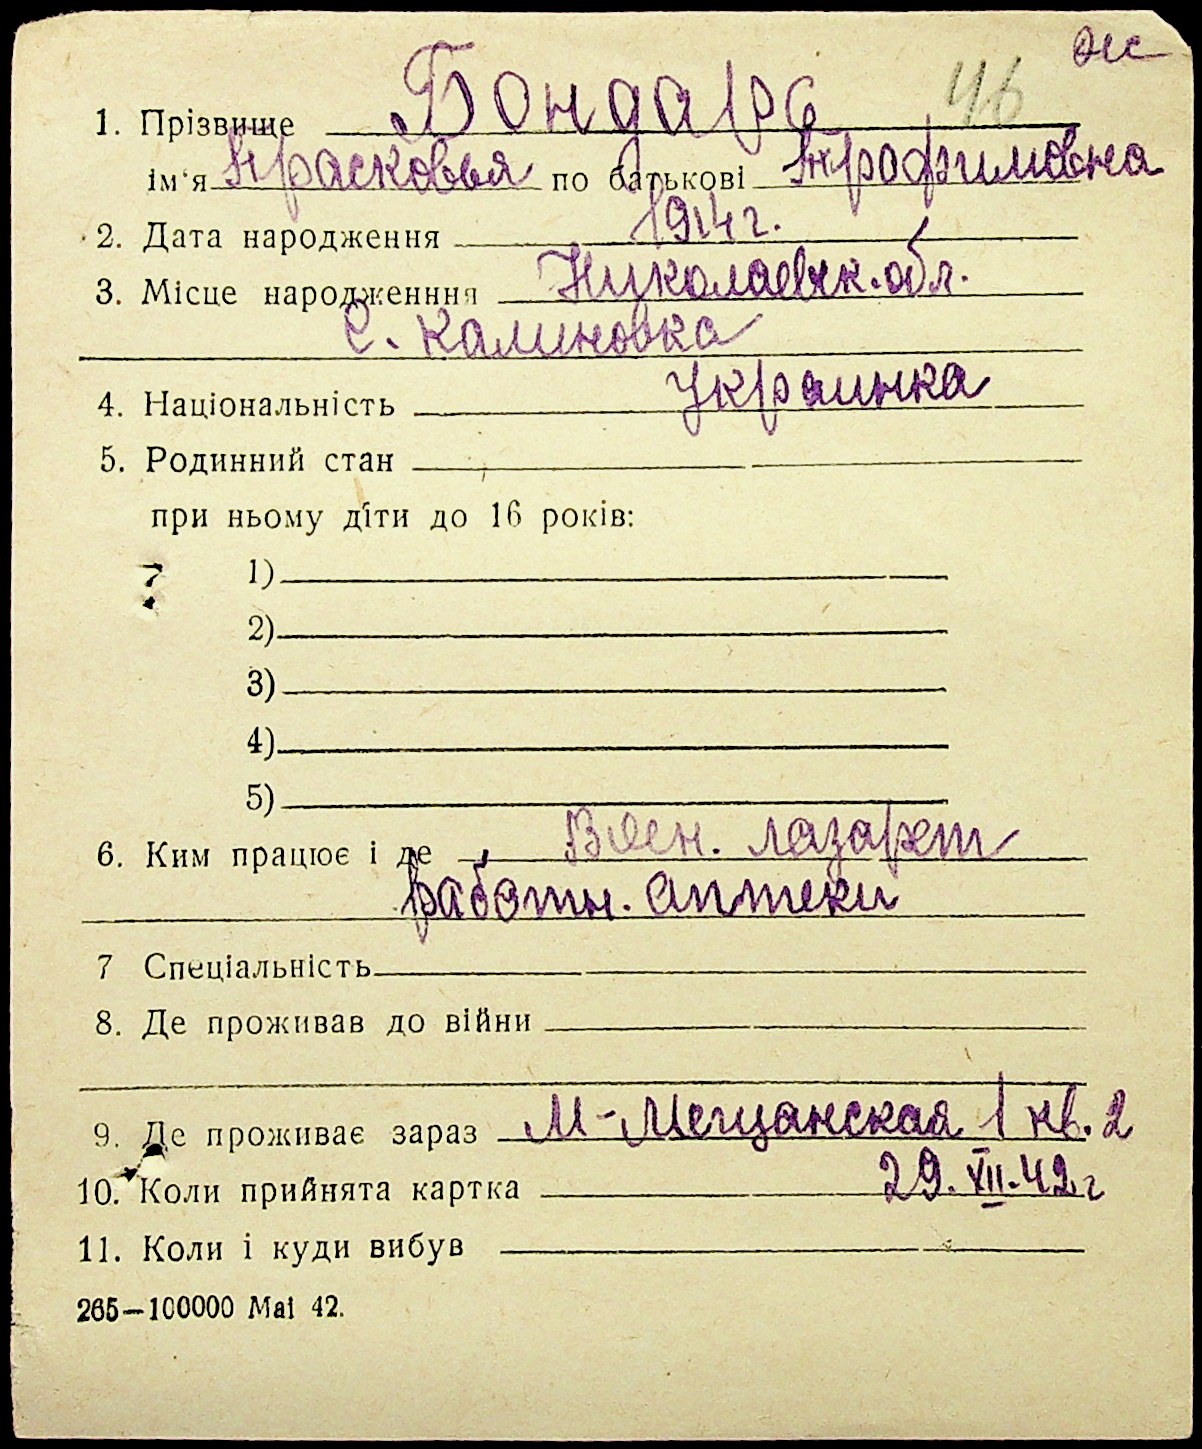 жс
46
1. Прізвище Бондарь
ім'я Прасковья по батькові Трофимовна
2. Дата народження 1914 г.
3. Місце народженння Николаевск. обл.
с. Калиновка
4. Національність Украинка
5. Родинний стан
при ньому діти до 16 років:
1)
2)
3)
4)
5)
6. Ким працює і де Воен. лазарет
работн. аптеки
7 Спеціальність
8. Де проживав до війни
9. Де проживає зараз М-Мещанская 1 кв. 2
10. Коли прийнята картка 29.XII.42 г
11. Коли і куди вибув
265—100000 Mai 42.